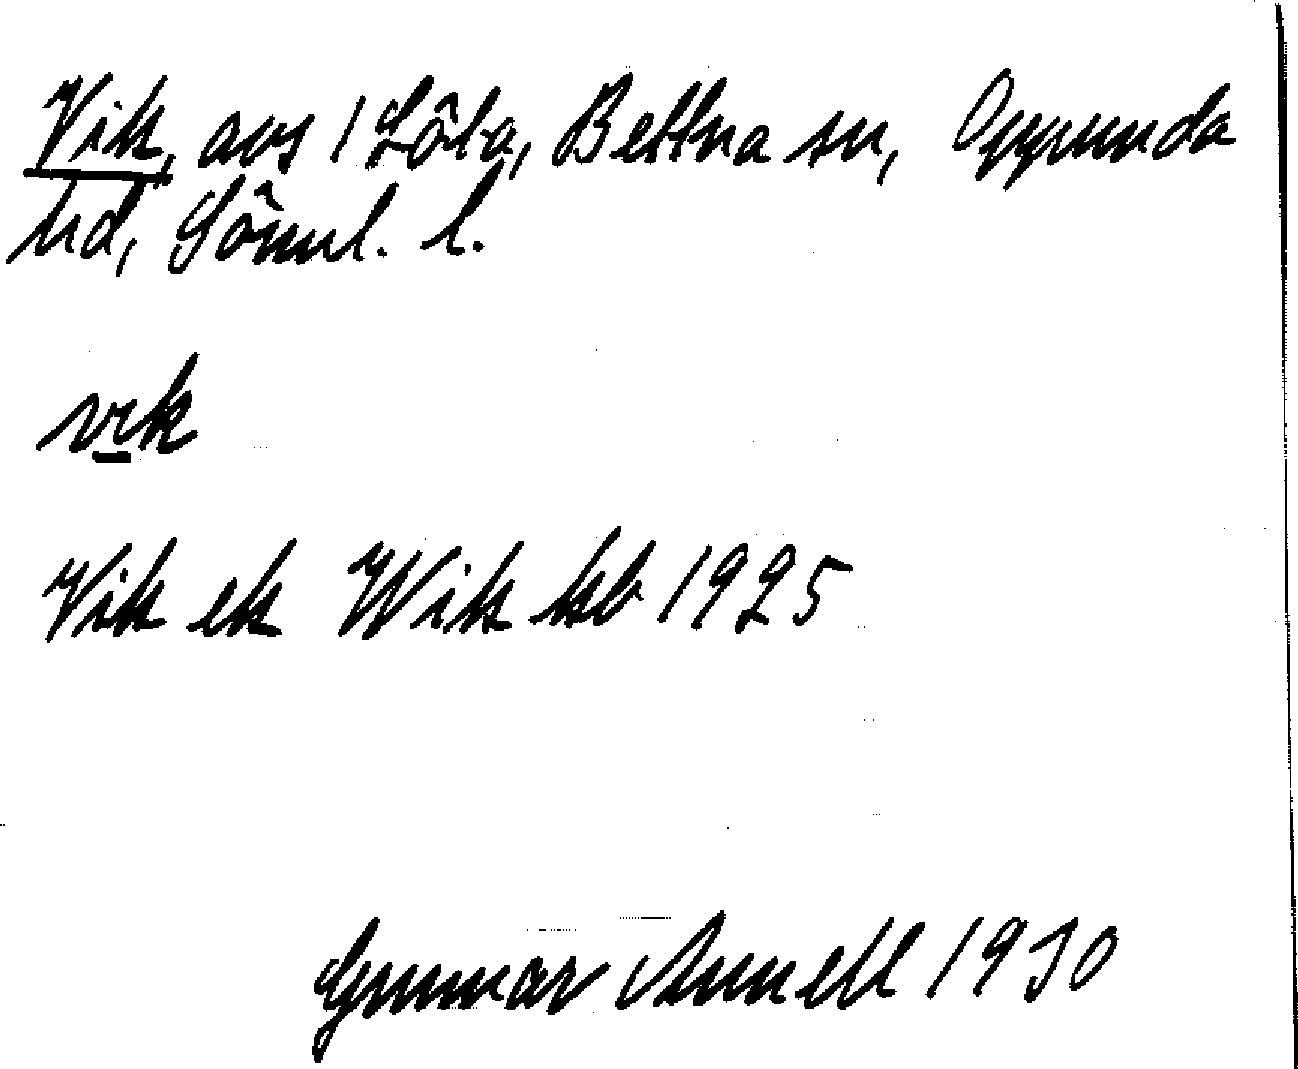 Vik, avs / Löta, Bettna sn, Oppunda
hd, Sörml. l.
vik
Vik ek Wik kb 1925
Gunnar Annell 1930